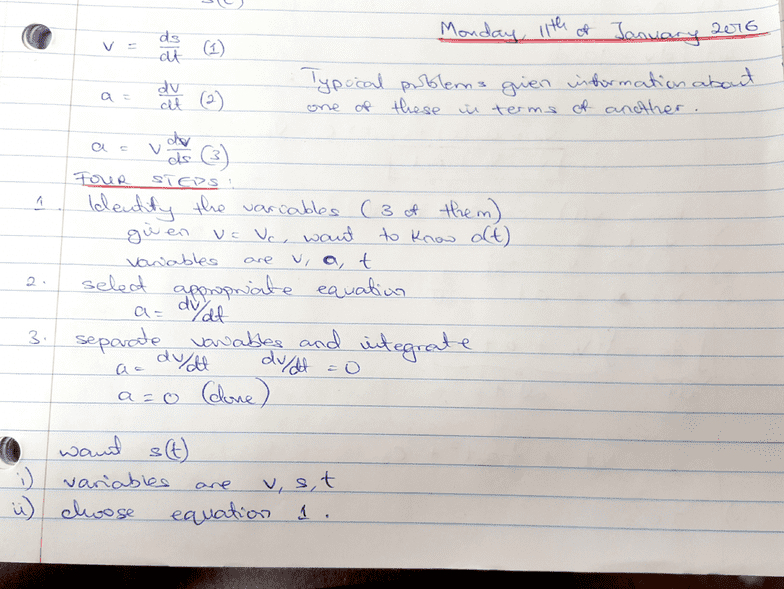 s(t)
Monday, 11th of January 2016
v = ds/dt (1)
a = dv/dt (2)
Typical problems given information about
one of these in terms of another.
a = v dv/ds (3)
FOUR STEPS:
1. Identify the variables (3 of them)
given v = Vc, want to know a(t)
variables are v, a, t
2. select appropriate equation
a = dv/dt
3. separate variables and integrate
a = dv/dt dv/dt = 0
a = 0 (done)
want s(t)
i) variables are v, s, t
ii) choose equation 1.